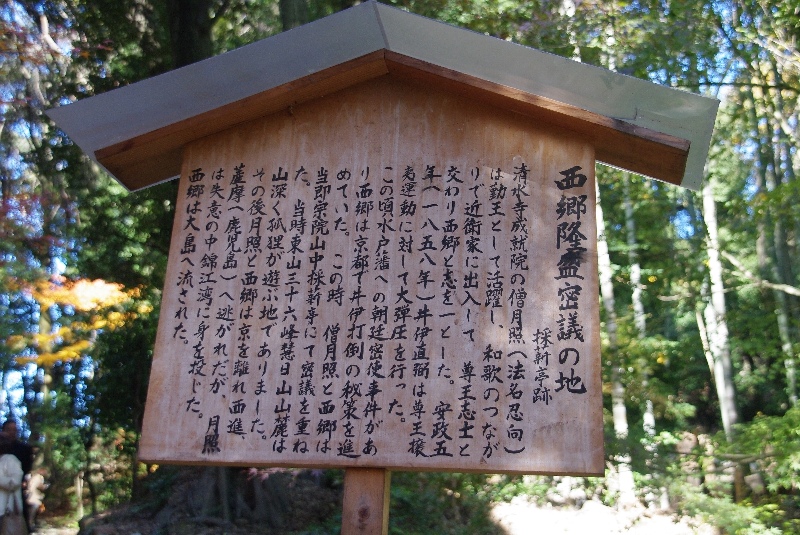 西郷隆盛密議の地
採薪亭跡
清水寺成就院の僧月照(法名忍向)
は勤王として活躍し、和歌のつなが
りで近衛家に出入して 尊王志士と
交わり西郷と志を一とした。安政五
年(一八五八年)井伊直弼は尊王攘
夷運動に対して大弾圧を行った。
この頃水戸藩への朝廷密使事件があ
り西郷は京都で井伊打倒の秘策を進
めていた。この時 僧月照と西郷は
当即宗院山中採薪亭にて密議を重ね
た。当時東山三十六峰慧日山山麓は
山深く狐狸が遊ぶ地でありました。
その後月照と西郷は京を離れ西進、
薩摩(鹿児島)へ逃がれだが、月照
は失意の中錦江湾に身を投じた。
西郷は大島へ流された。